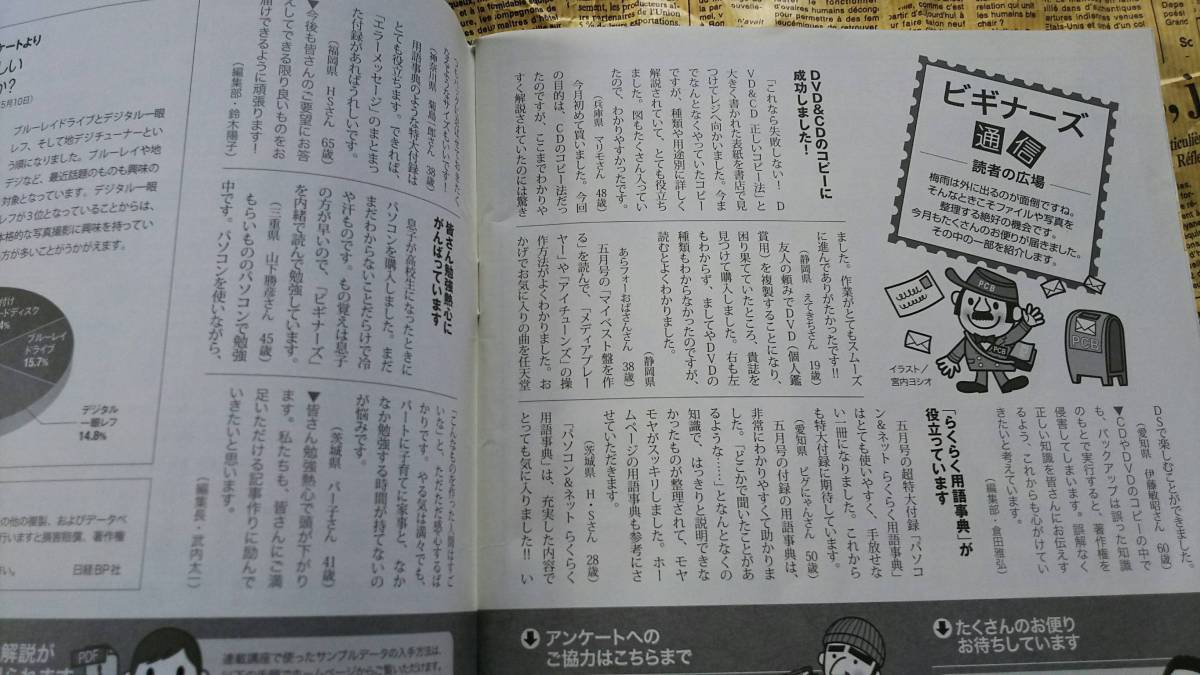 ビギナーズ
通信
読者の広場
梅雨は外に出るのが面倒ですね。
そんなときこそファイルや写真を
整理する絶好の機会です。
今月もたくさんのお便りが届きました。
その中の一部を紹介します。
PCB
PCB
PCB
イラスト／
宮内ヨシオ
DVD&CDのコピーに
成功しました！
「これなら失敗しない！　D
VD&CD 正しいコピー法」と
大きく書かれた表紙を書店で見
つけてレジへ向かいました。今ま
でなんとなくやっていたコピー
ですが、種類や用途別に詳しく
解説されていて、とても役立ち
ました。図もたくさん入ってい
たので、わかりやすかったです。
（兵庫県　マリモさん　48歳）
今月初めて買いました。今回
の目的は、CDのコピー法だっ
たのですが、ここまでわかりや
すく解説されていたのには驚き
ました。作業がとてもスムーズ
に進んでありがたかったです!!
（静岡県　えてきちさん　19歳）
友人の頼みでDVD（個人鑑
賞用）を複製することになり、
困り果てていたところ、貴誌を
見つけて購入しました。右も左
もわからず、ましてやDVDの
種類もわからなかったのですが、
読むとよくわかりました。
（静岡県
あらフォーおばさんさん　38歳）
五月号の「マイベスト盤を作
る」を読んで、「メディアプレー
ヤー」や「アイチューンズ」の操
作方法がよくわかりました。お
かげでお気に入りの曲を任天堂
DSで楽しむことができました。
（愛知県　伊藤敏昭さん　60歳）
▼CDやDVDのコピーの中で
も、バックアップは誤った知識
のもとで実行すると、著作権を
侵害してしまいます。誤解なく
正しい知識を皆さんにお伝えす
るよう、これからも心がけてい
きたいと考えています。
（編集部・倉田雅弘）
「らくらく用語事典」が
役立っています
五月号の超特大付録「パソコ
ン&ネット らくらく用語事典」
はとても使いやすく、手放せな
い一冊になりました。これから
も特大付録に期待しています。
（愛知県　ピグにゃんさん　50歳）
五月号の付録の用語事典は、
非常にわかりやすくて助かりま
した。「どこかで聞いたことがあ
るような……」となんとなくの
知識で、はっきりと説明できな
かったものが整理されて、モヤ
モヤがスッキリしました。ホー
ムページの用語事典も参考にさ
せていただきます。
（茨城県　H・Sさん　28歳）
「パソコン&ネット らくらく
用語事典」は、充実した内容で
とっても気に入りました!!　い
（神奈川県　菊島一郎さん　38歳）
用語事典のような特大付録は
とても役立ちます。できれば、
「エラーメッセージ」のまとまっ
た付録があればうれしいです。
（福岡県　HSさん　65歳）
▼今後も皆さんのご要望にお答
えしてできる限り良いものをお
届けできるように頑張ります！
（編集部・鈴木陽子）
皆さん勉強熱心に
がんばっています
息子が高校生になったときに
パソコンを購入しました。まだ
まだわからないことだらけで冷
や汗ものです。もの覚えは息子
の方が早いので、「ビギナーズ」
を内緒で読んで勉強しています。
（三重県　山下勝彦さん　45歳）
もらいもののパソコンで勉強
中です。パソコンを使いながら、
「こんなものを作った人間はすご
いな」と、ただただ感心するば
かりです。やる気は満々でも、
パートに子育てに家事と、なか
なか勉強する時間が持てないの
が悩みです。
（茨城県　バー子さん　41歳）
▼皆さん勉強熱心で頭が下がり
ます。私たちも、皆さんにご満
足いただける記事作りに励んで
いきたいと思います。
（編集長・武内太一）
ケートより
しい
か？
5月10日）
ブルーレイドライブとデジタル一眼
レフ、そして地デジチューナーとい
う順になりました。ブルーレイや地
デジなど、最近話題のものも興味の
対象となっています。デジタル一眼
レフが3位となっていることからは、
体格的な写真撮影に興味を持ってい
方が多いことがうかがえます。
付け
ードディスク
4%
ブルーレイ
ドライブ
15.7%
デジタル
一眼レフ
14.8%
の他の複製、およびデータベ
行いますと損害賠償、著作権
さい。　日経BP社
解説が
PDF
連載講座で使ったサンプルデータの入手方法は、
アンケートへの
ご協力はこちらまで
たくさんのお便り
お待ちしています